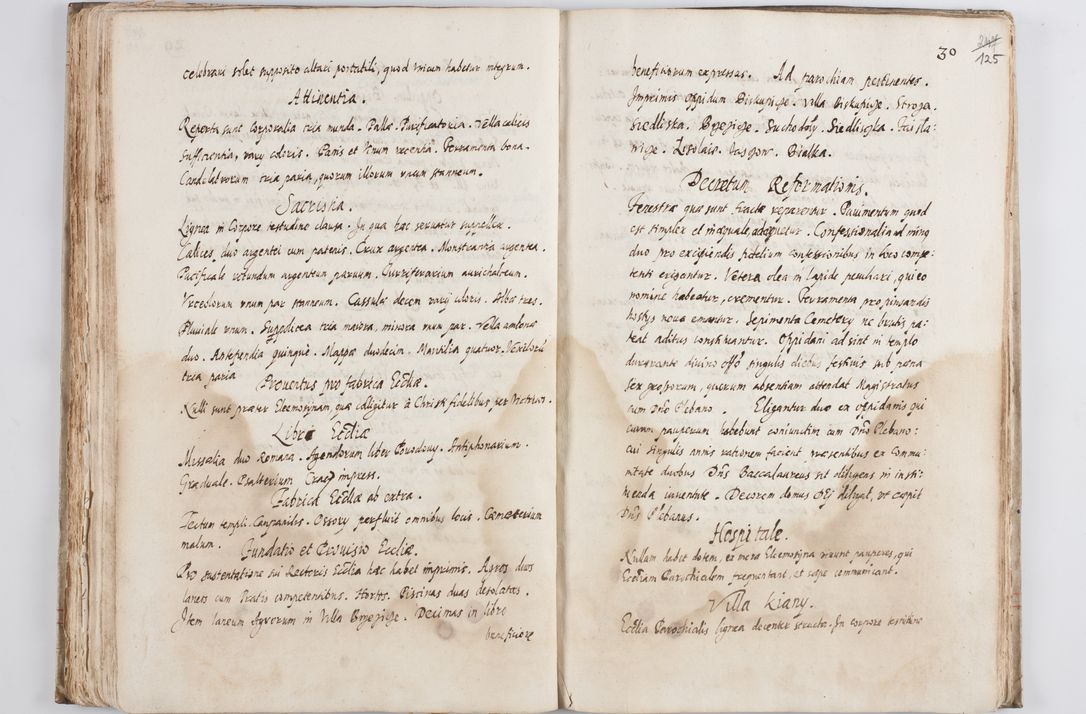 celebrari solet supposito altari portatili, quod unicum habetur integrum.
Attinentia.
Reperta sunt Corporalia tria munda. Palla. Purificatoria. Vella calicis
sufficientia, varÿ coloris. Panis et Vinum recentia. Ferramenta bona.
Candelabrorum tria paria, quorum illorum unum stanneum.
Sacristia.
Lignea in Corpore testudine clausa. In qua hæc servatur suppellex.
Calices duo argentei cum patenis. Crux argentea. Monstrantia argentea.
Pacificale rotundum argenteum parvum. Thuriferarium aurichalceum.
Urceolorum unum par stanneum. Cassulæ decem varÿ coloris. Albæ tres.
Pluviale unum. tria maiora, minora unum par. Vella ambonæ
duo. Antependia quinque. Mappæ duodecim. Manilia quatuor. Vexillorum
tria paria
Proventus pro fabrica Eccliæ.
Nulli sunt præter Eleemosinam, quæ colligitur à Christi fidelibus, per Vitricos.
Libri Eccliæ
Missalia duo Romana. Agendorum liber Antiphonarium.
Graduale. Psalterium Crac: impress.
Fabrica Eccliæ ab extra.
Tectum templi. Campanilis. Ossorÿ perfluit omnibus locis. Cæmeterium
malum.
Fundatio et Provisio Eccliæ.
Pro sustentatione sui Rectoris Ecclia hæc habet imprimis. Agros duos
laneos cum Pratis competentibus. Hortos. Piscinas duas desolatas.
Item laneum Agrorum in Villa Brzezicze. Decimas in libro
beneficiorum
30
125
beneficiorum expressas. Ad parochiam pertinentes.
Imprimis oppidum Biskupicze. Villa Biskupicze. Stroza.
Siedliska. Brzezicze. Suchodoły. Siedliszka.
Jasgow. Białka.
Decretum Reformationis.
Fenestræ quæ sunt fractæ reparentur. Pavimentum quod
est simplex et inæquale, adæquetur. Confessionalia ad minq
duo pro excipiendis fidelium confessionibus in foro compe:
tenti erigantur. Vetera olea in lapide peculiari, qui eo
nomine habeatur, crementur. Ferramenta pro pinsandis
hostÿs nova emantur. Sepimenta Cemeterÿ ne brutis pa:
teat aditus constituantur. Oppidani adsint in templo
durante divino offo singulis diebus festivis sub pœna
sex grossorum, quorum absentiam attendat Magistratus
cum Dño Plebano. Eligantur duo ex oppidanis qui
curam pauperum habebunt coniunctim cum Dño Plebano:
cui singulis annis rationem facient præsentibus ex Commu:
nitate duobus. Dñs Baccalaureus sit diligens in insti:
tuenda iuventute. Decorem domus Dei diligat, ut cæpit
Dñs Plebanus.
Hospitale.
Nullam habet dotem, ex mera Eleemosyna vivunt pauperes, qui
Eccliam Parochialem frequentant, et sæpe communicant.
Villa Kiany.
Ecclia Parochialis lignea decenter structa. In corpore testudine